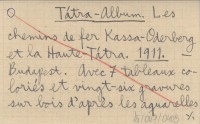 Tátra-Album. Les
chemins de fer Kassa-Oderberg
et la Haute-Tátra. 1911. —
Budapest. Avec 7 tableaux co-
loriés et vingt-six gravures
sur bois d'après les aquarelles